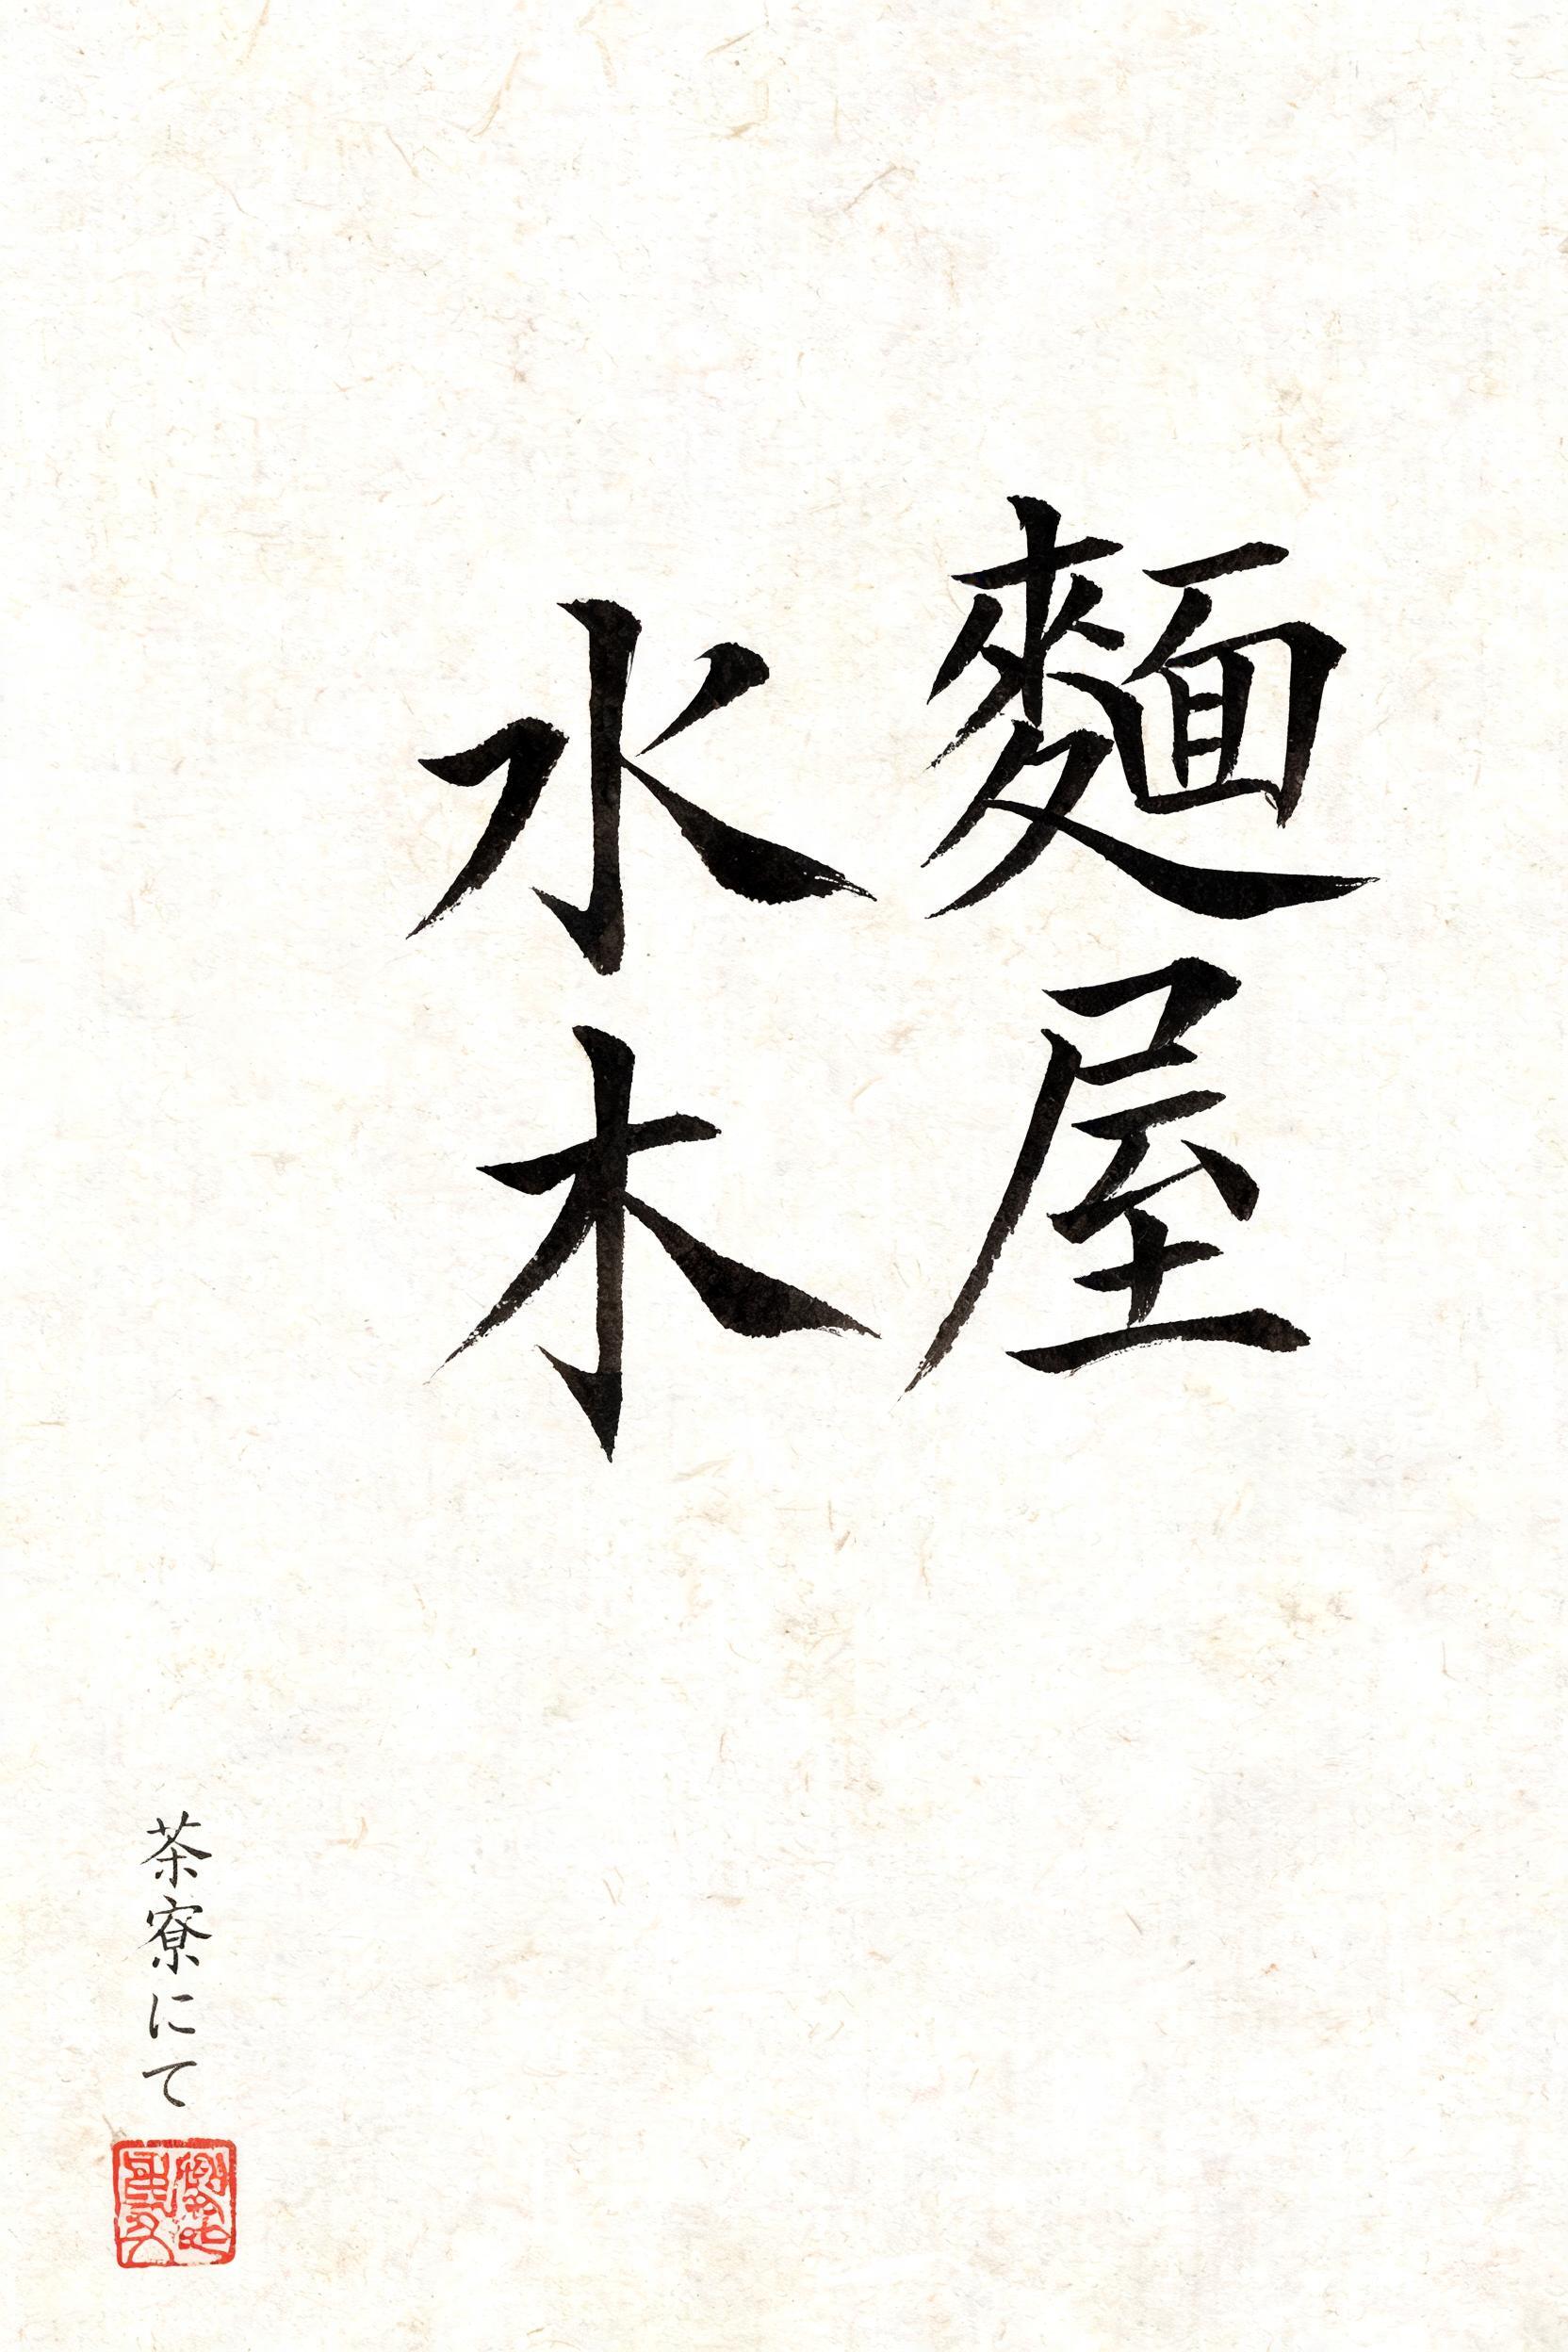 麵屋
水木
茶寮にて